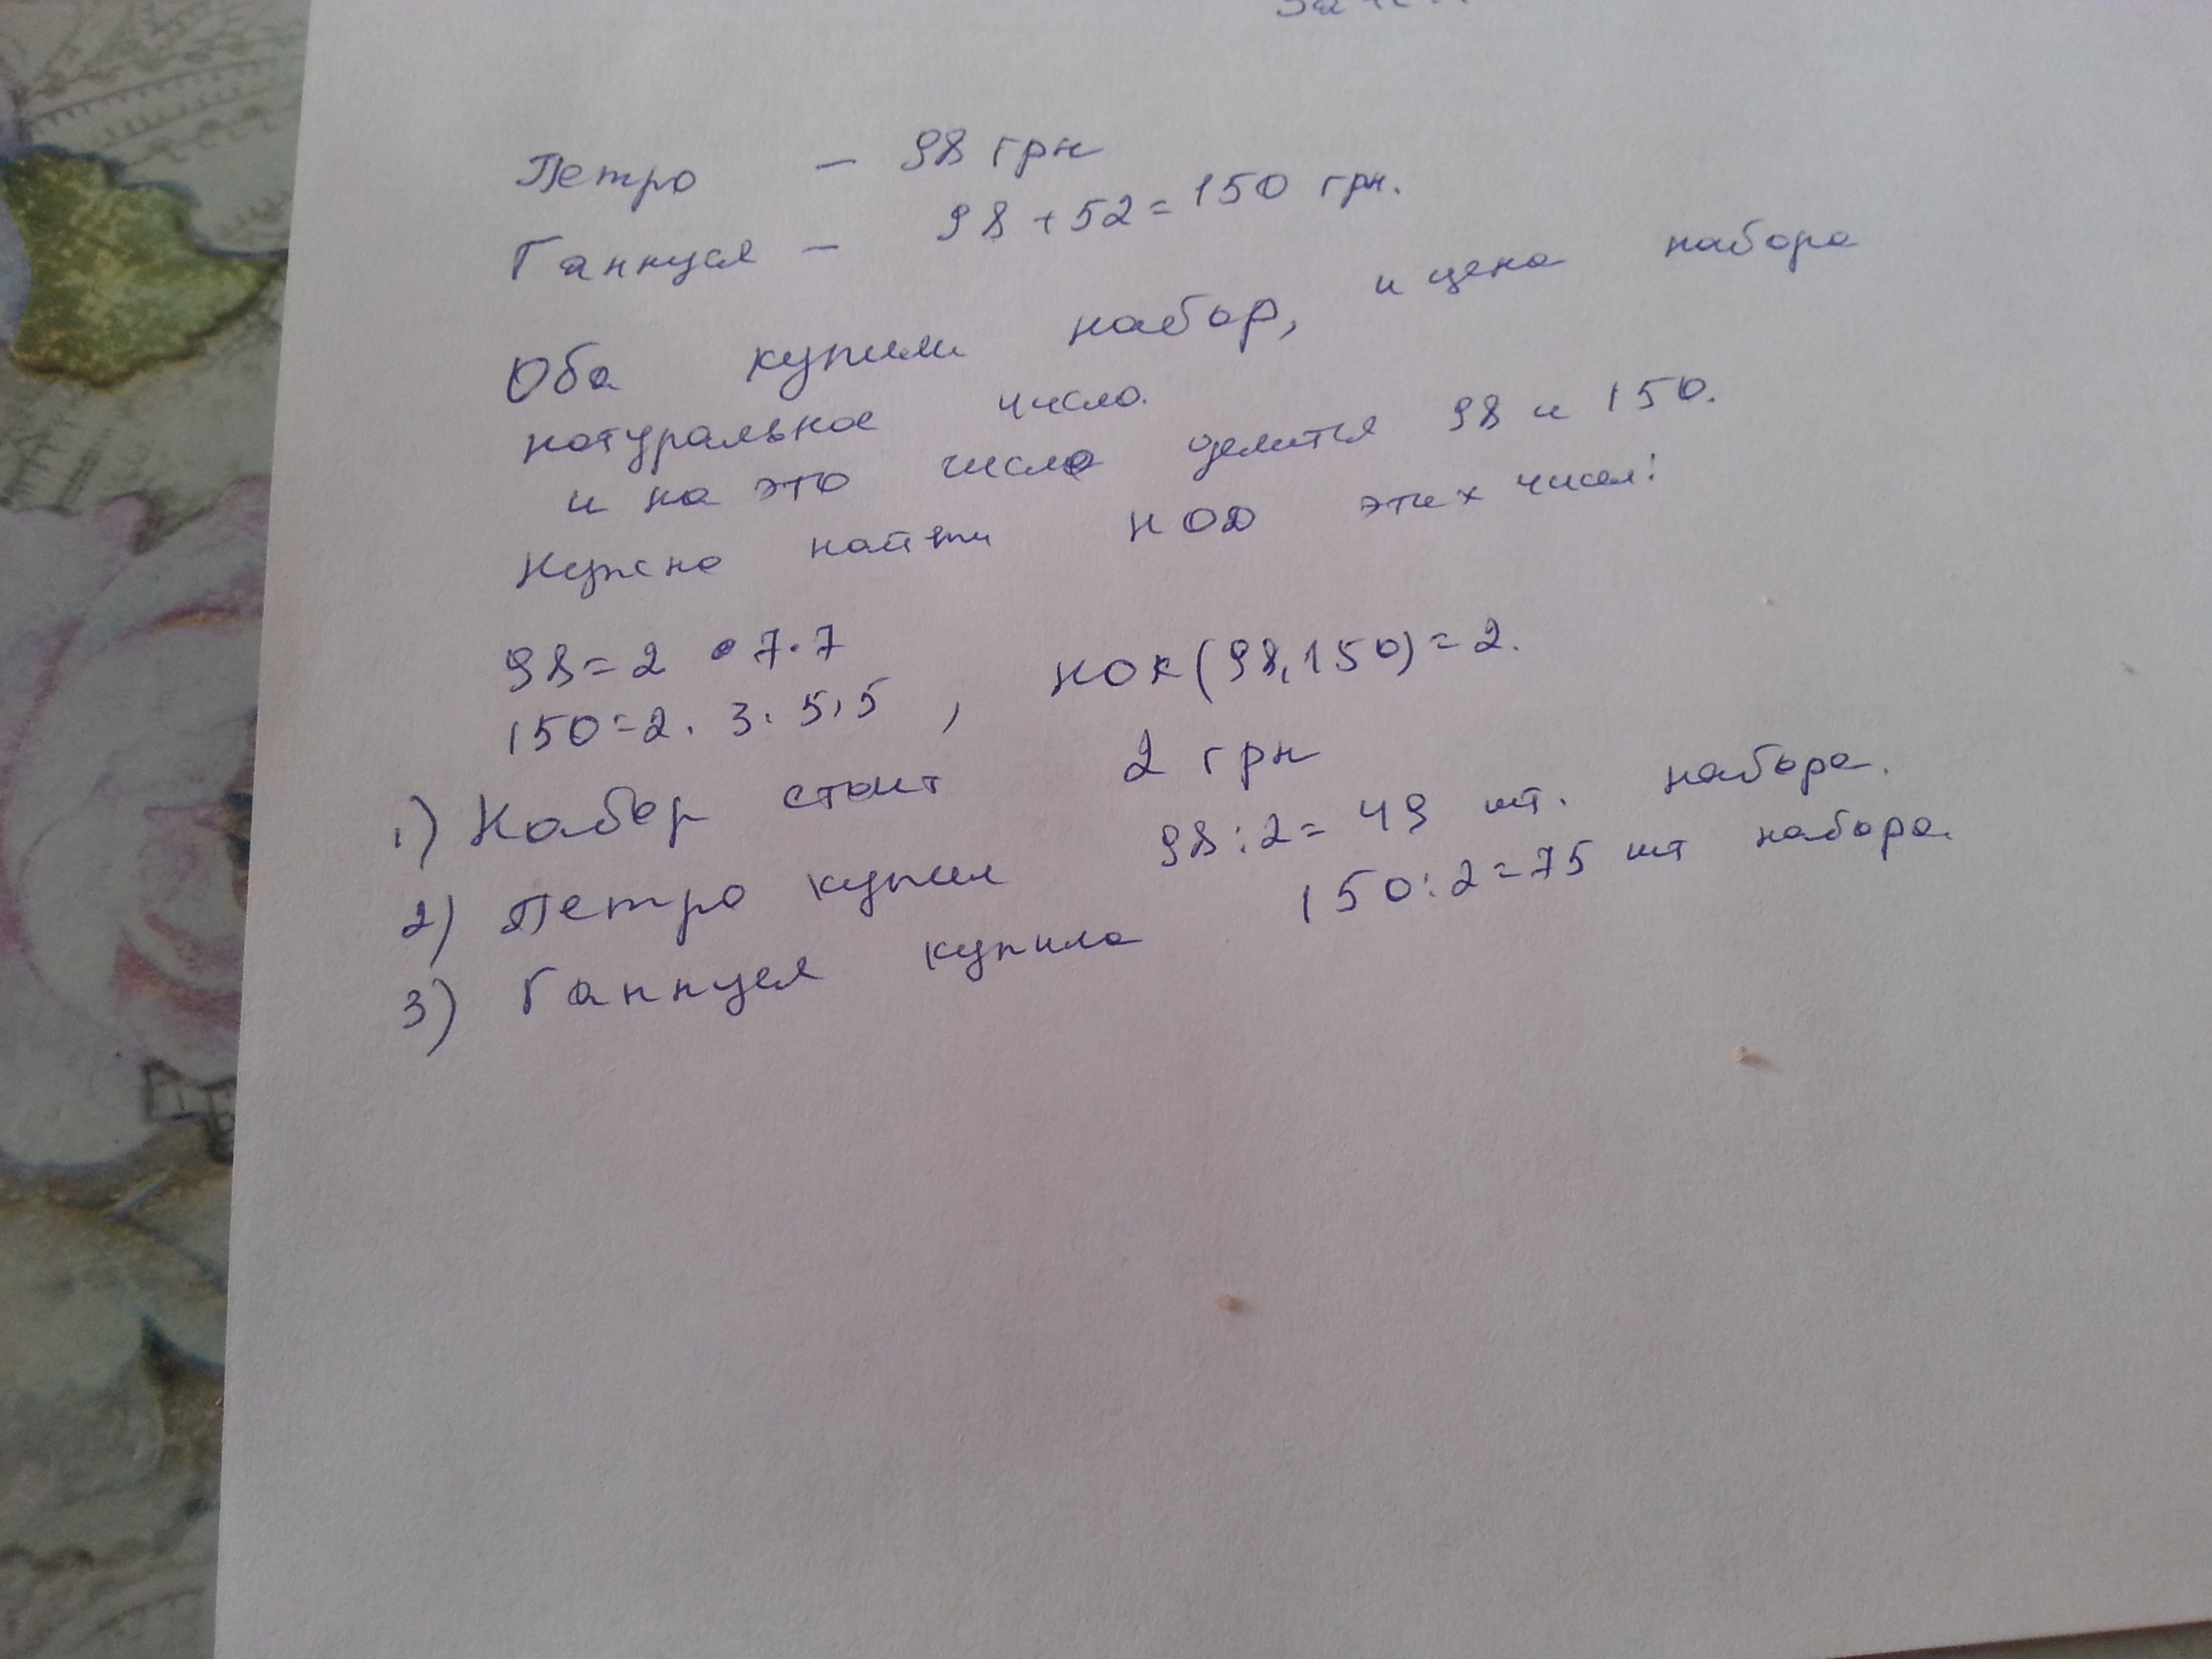 Петро - 98 грн
Ганнуся - 98 + 52 = 150 грн.
Оба купили набор, и цена набора
натуральное число.
и на это число делится 98 и 150.
Нужно найти НОД этих чисел:
98 = 2 · 7 · 7
150 = 2 · 3 · 5 · 5 , НОК (98, 150) = 2.
1) Набор стоит 2 грн
2) Петро купил 98 : 2 = 49 шт. набора.
3) Ганнуся купила 150 : 2 = 75 шт набора.